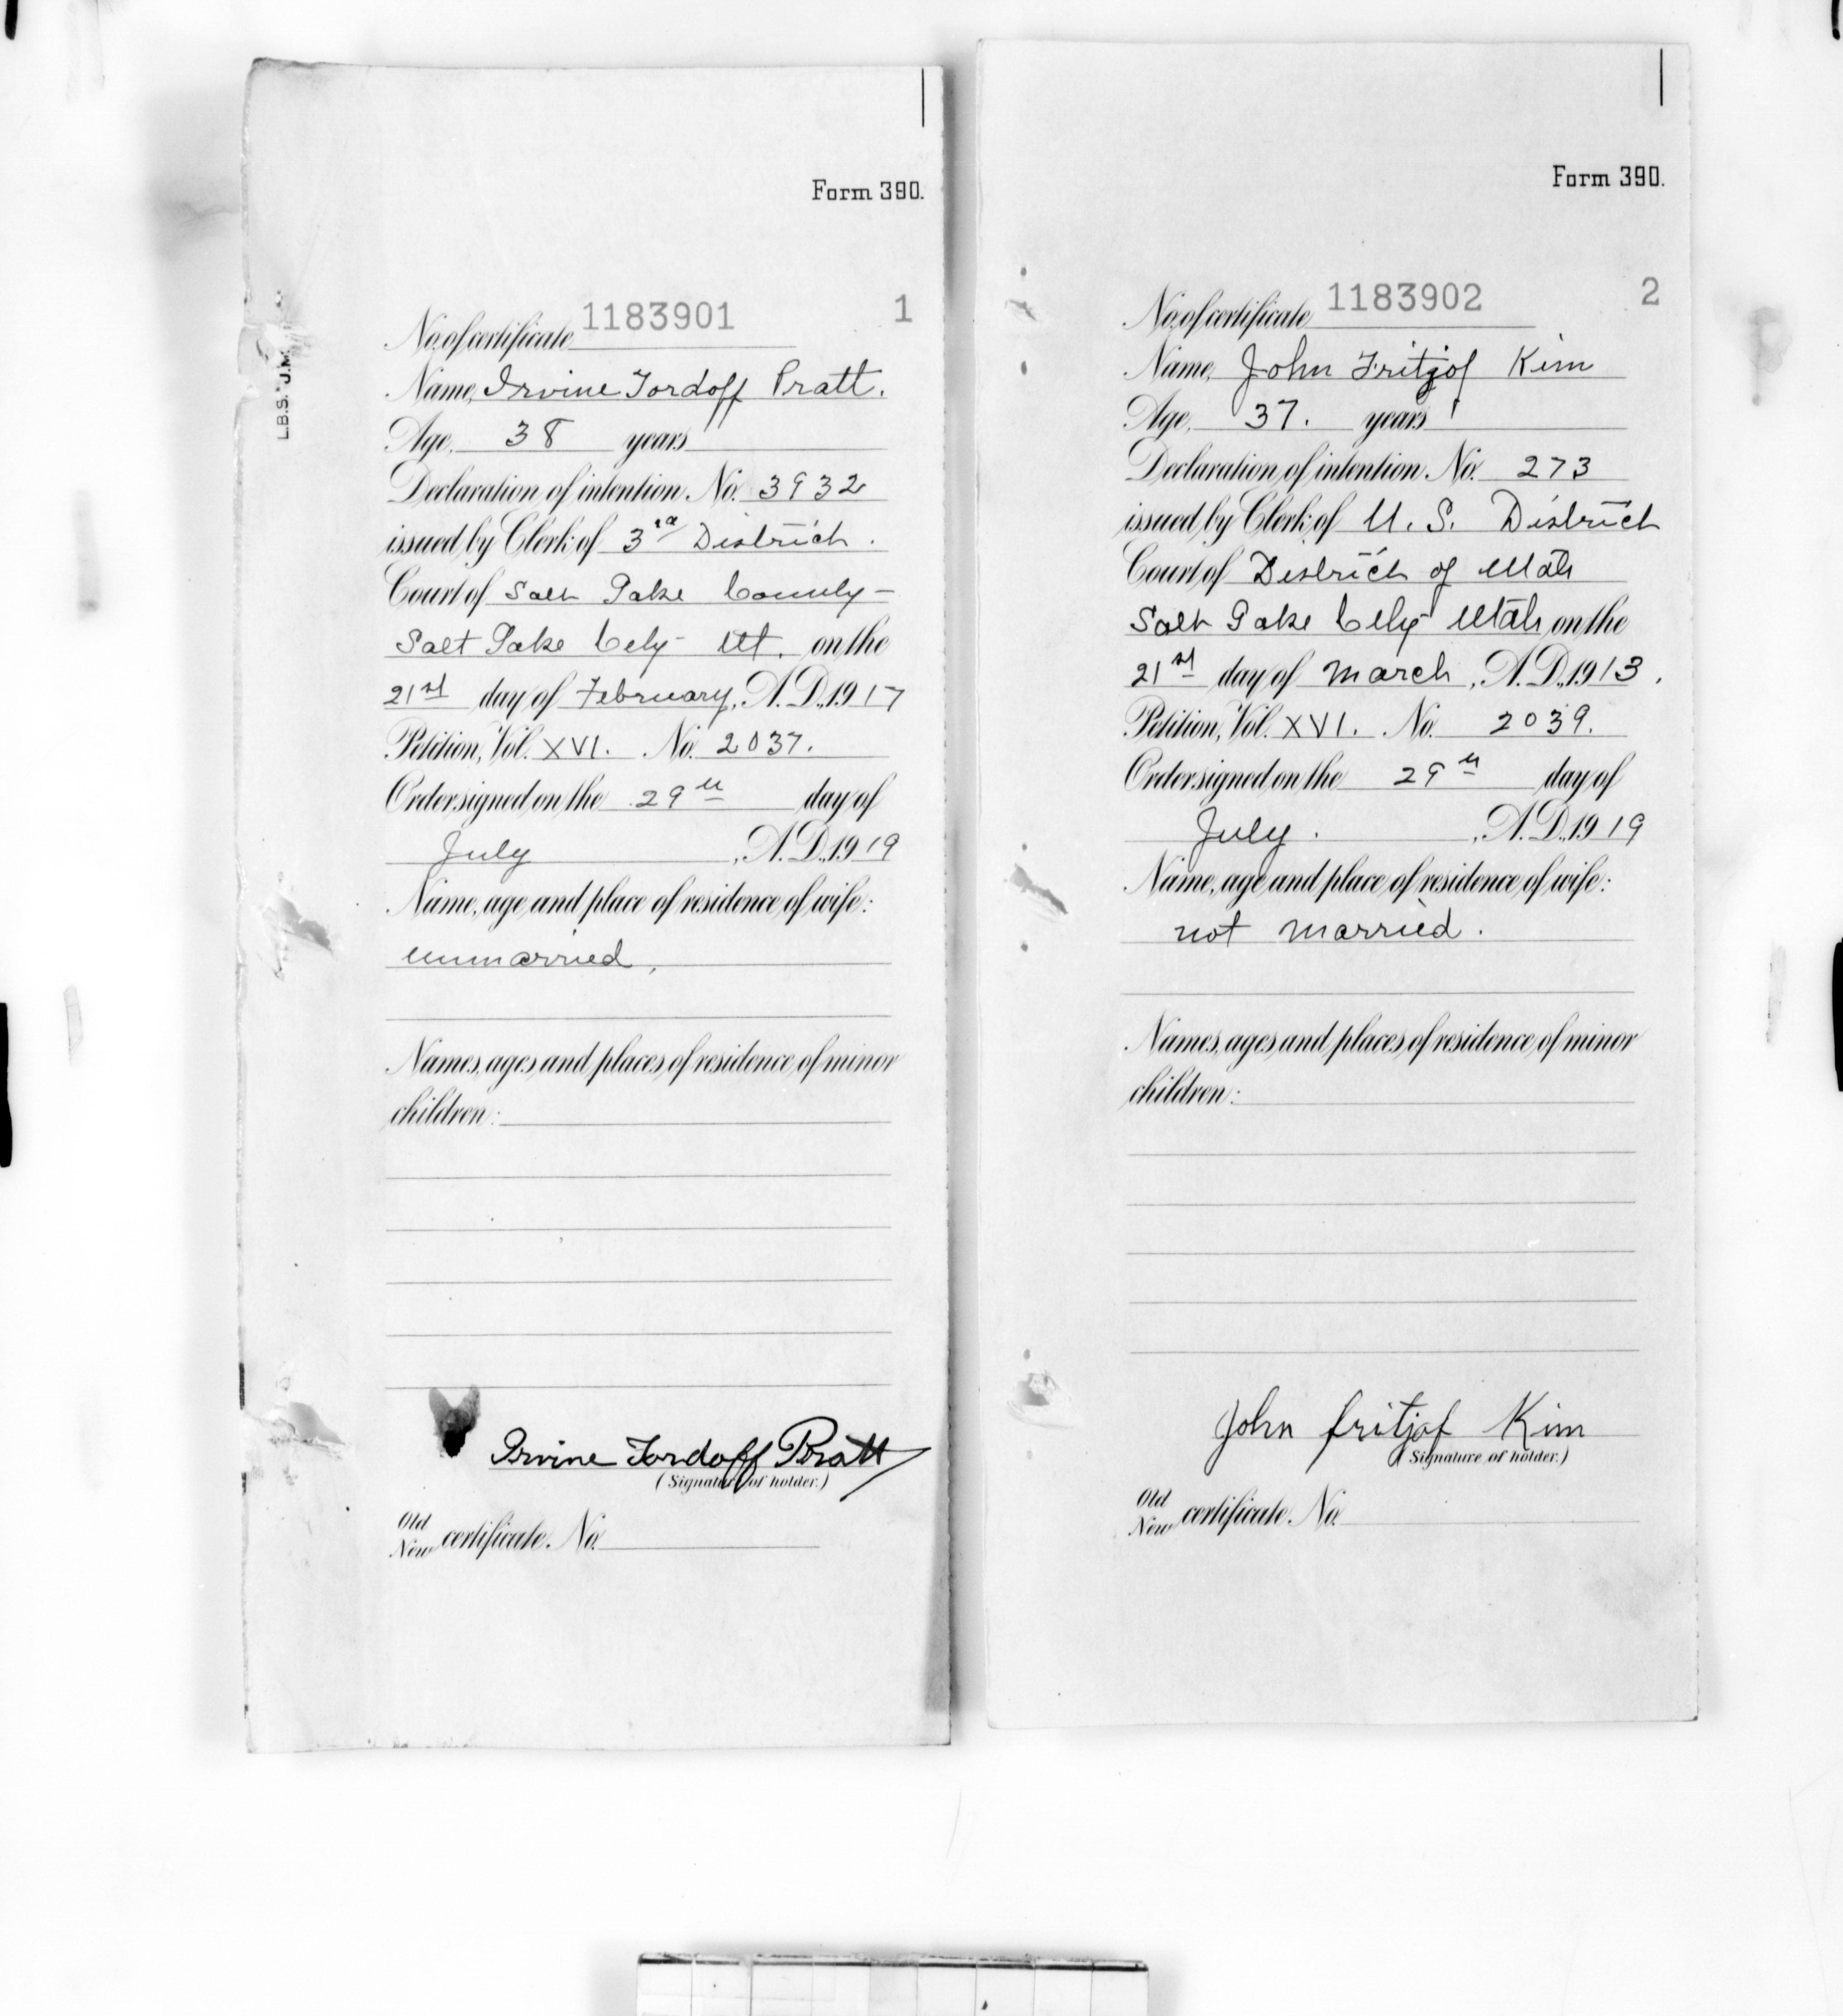 Form 390.
L.B.S. J.M.
No. of certificate 1183901 1
Name, Irvine Tordoff Pratt.
Age, 38 years
Declaration of intention No. 3932
issued by Clerk of 3rd District.
Court of Salt Lake County-
Salt Lake City Ut. on the
21st day of February, A.D. 1917
Petition, Vol. XVI. No. 2037.
Order signed on the 29th day of
July, A.D. 1919
Name, age and place of residence of wife:
unmarried,
Names, ages and places of residence of minor
children:
Irvine Tordoff Pratt
(Signature of holder.)
Old
New certificate. No.
Form 390.
No. of certificate 1183902 2
Name, John Fritjof Kim
Age, 37. years
Declaration of intention No. 273
issued by Clerk of U. S. District
Court of District of Utah
Salt Lake City Utah on the
21st day of March, A.D. 1913.
Petition, Vol. XVI. No. 2039.
Order signed on the 29th day of
July., A.D. 1919
Name, age and place of residence of wife:
not married.
Names, ages and places of residence of minor
children:
John fritjof Kim
(Signature of holder.)
Old
New certificate. No.